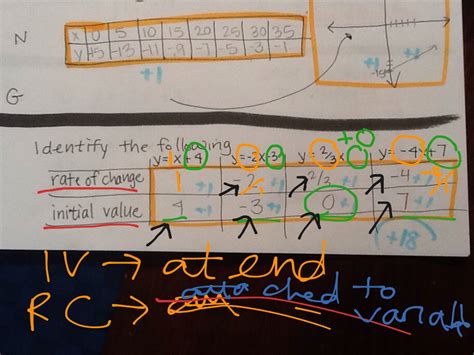 N
x 0 5 10 15 20 25 30 35
y -15 -13 -11 -9 -7 -5 -3 -1
+1
-15
+1
G
Identify the following
y=1x+4 y=-2x-3 y=2/3x +0 y=-4x+7
rate of change 1 +1 -2 +1 2/3 +1 -4
initial value 4 +1 -3 +1 0 +1 7 +1
+18
IV → at end
RC → attached to variable